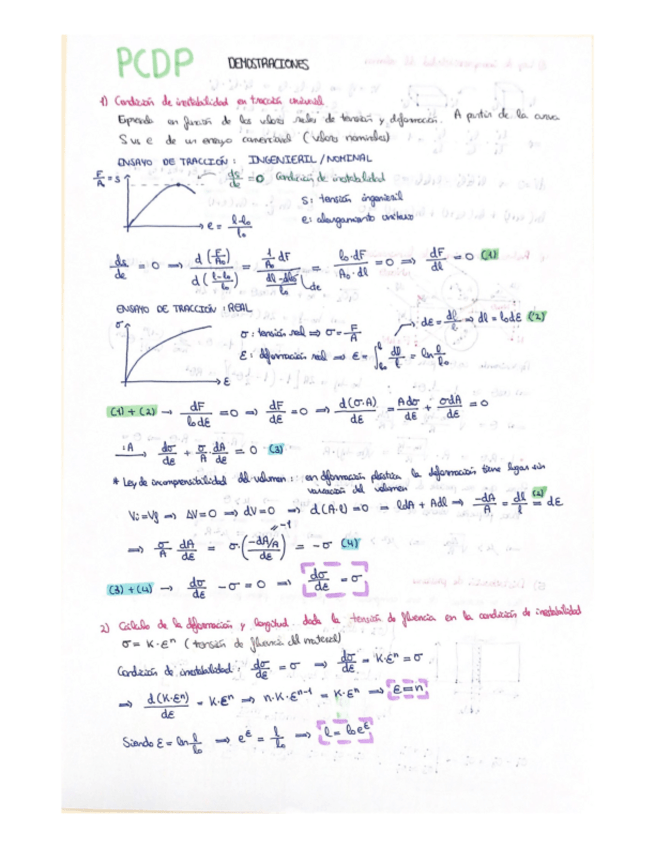 PCDP DEMOSTRACIONES
1) Condición de inestabilidad en tracción uniaxial
Expresada en función de los valores reales de tensión y deformación. A partir de la curva
S vs e de un ensayo convencional (valores nominales)
ENSAYO DE TRACCIÓN: INGENIERIL/NOMINAL
F/A₀ = S
ds/de = 0 Condición de inestabilidad
S: tensión ingenieril
e = (l-l₀)/l₀
e: alargamiento unitario
ds/de = 0 ⇒ d(F/A₀)/d((l-l₀)/l₀) = (1/A₀ dF)/((dl-dl₀)/l₀) = l₀·dF/A₀·dl = 0 ⇒ dF/dl = 0 (1)
de
ENSAYO DE TRACCIÓN: REAL
σ
σ: tensión real ⇒ σ = F/A
dε = dl/l ⇒ dl = l₀dε (2)
ε: deformación real ⇒ ε = ∫ₗ₀ˡ dl/l = ln l/l₀
ε
(1)+(2) → dF/l₀dε = 0 ⇒ dF/dε = 0 ⇒ d(σ·A)/dε = Adσ/dε + σdA/dε = 0
:A → dσ/dε + σ/A dA/dε = 0 (3)
* Ley de incompresibilidad del volumen: en deformación plástica la deformación tiene lugar sin
variación del volumen
Vi=Vf ⇒ ΔV=0 ⇒ dV=0 ⇒ d(A·l)=0 = ldA + Adl ⇒ -dA/A = dl/l (2) = dε
-1
⇒ σ/A dA/dε = σ·(-dA/A / dε) = -σ (4)
(3)+(4) → dσ/dε - σ = 0 ⇒ dσ/dε = σ
2) Cálculo de la deformación y longitud dada la tensión de fluencia en la condición de inestabilidad
σ = K·εⁿ (tensión de fluencia del material)
Condición de inestabilidad: dσ/dε = σ ⇒ dσ/dε = K·εⁿ = σ
⇒ d(K·εⁿ)/dε = K·εⁿ ⇒ n·K·εⁿ⁻¹ = K·εⁿ ⇒ ε=n
Siendo ε = ln l/l₀ ⇒ e^ε = l/l₀ ⇒ l = l₀e^ε